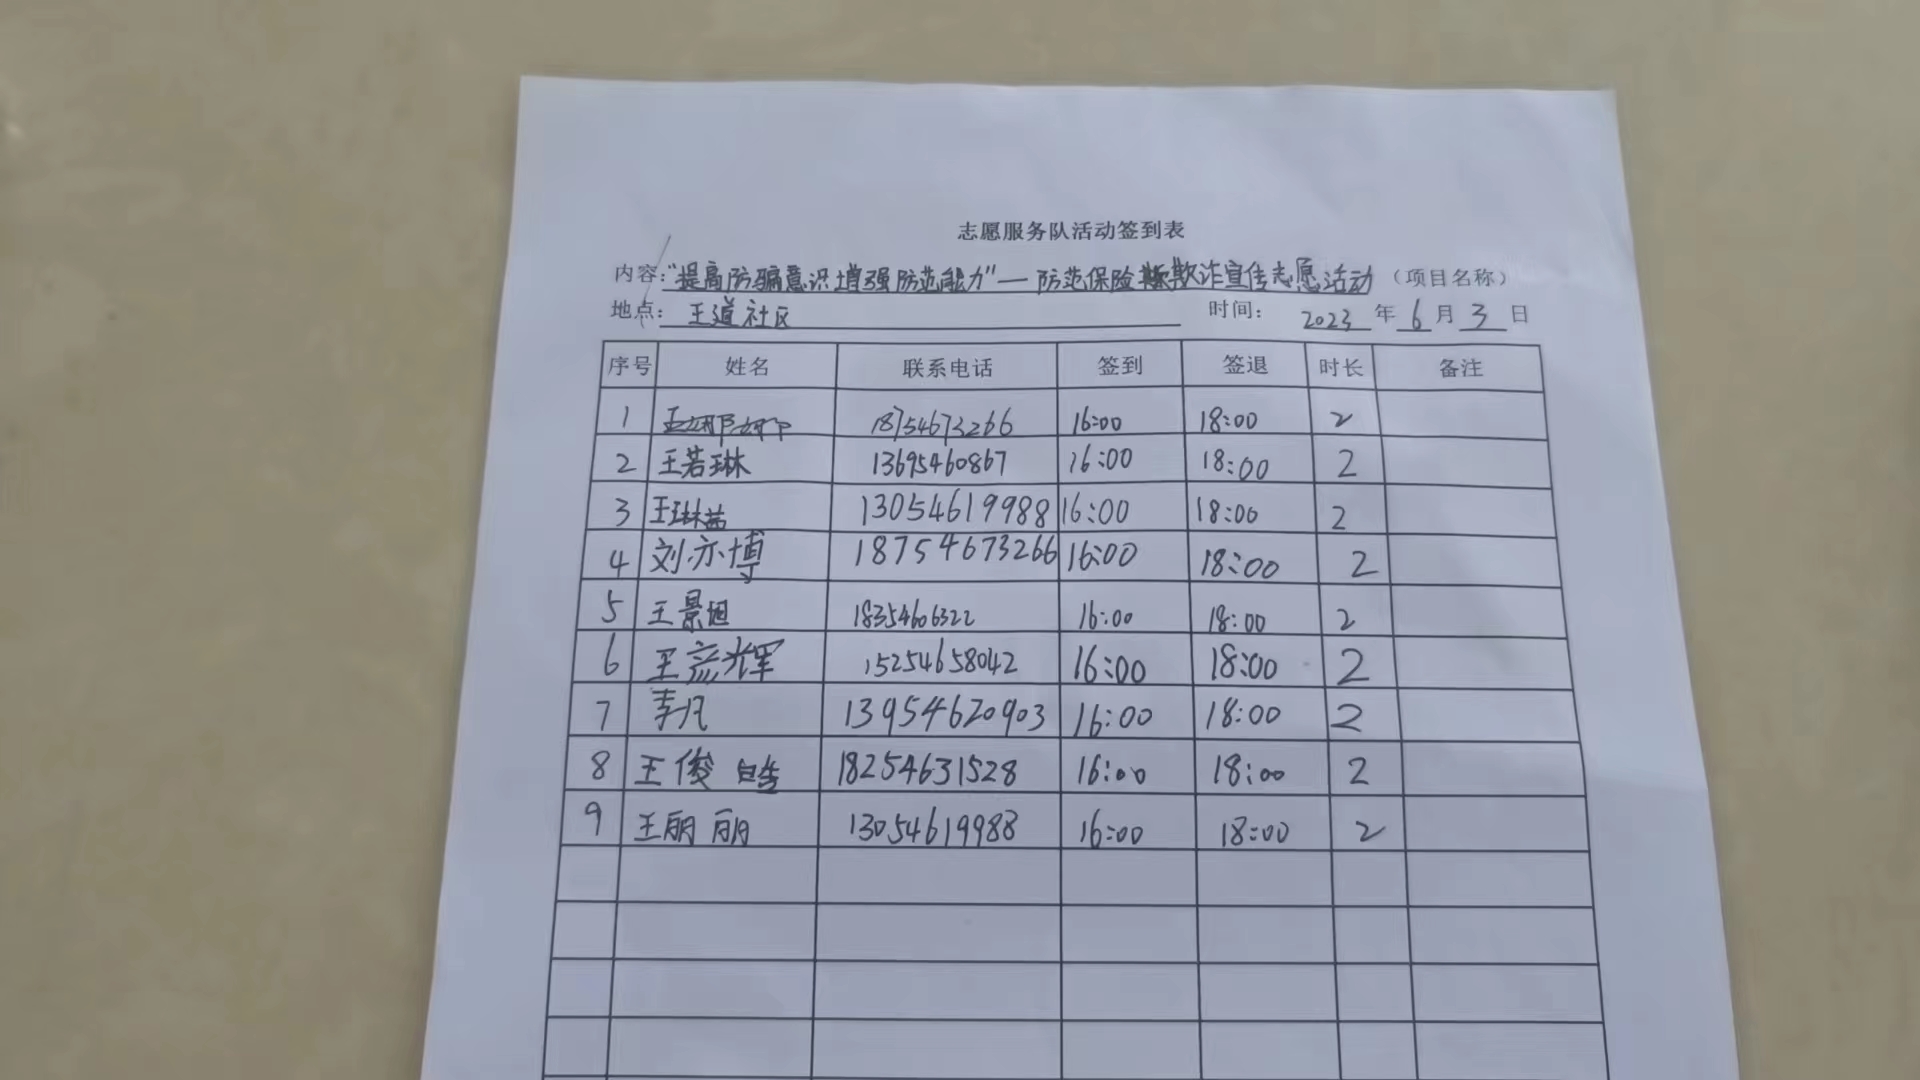 志愿服务队活动签到表
内容:"提高防骗意识增强防范能力"—防范保险欺诈宣传志愿活动(项目名称)
地点: 王道社区 时间: 2023年6月3日
序号 姓名 联系电话 签到 签退 时长 备注
1 王娜娜 18754673266 16:00 18:00 2
2 王若琳 13695460867 16:00 18:00 2
3 王琳茜 13054619988 16:00 18:00 2
4 刘亦博 18754673266 16:00 18:00 2
5 王景旭 18354606322 16:00 18:00 2
6 王彦辉 15254658042 16:00 18:00 2
7 李凡 13954620903 16:00 18:00 2
8 王俊皓 18254631528 16:00 18:00 2
9 王丽丽 13054619988 16:00 18:00 2